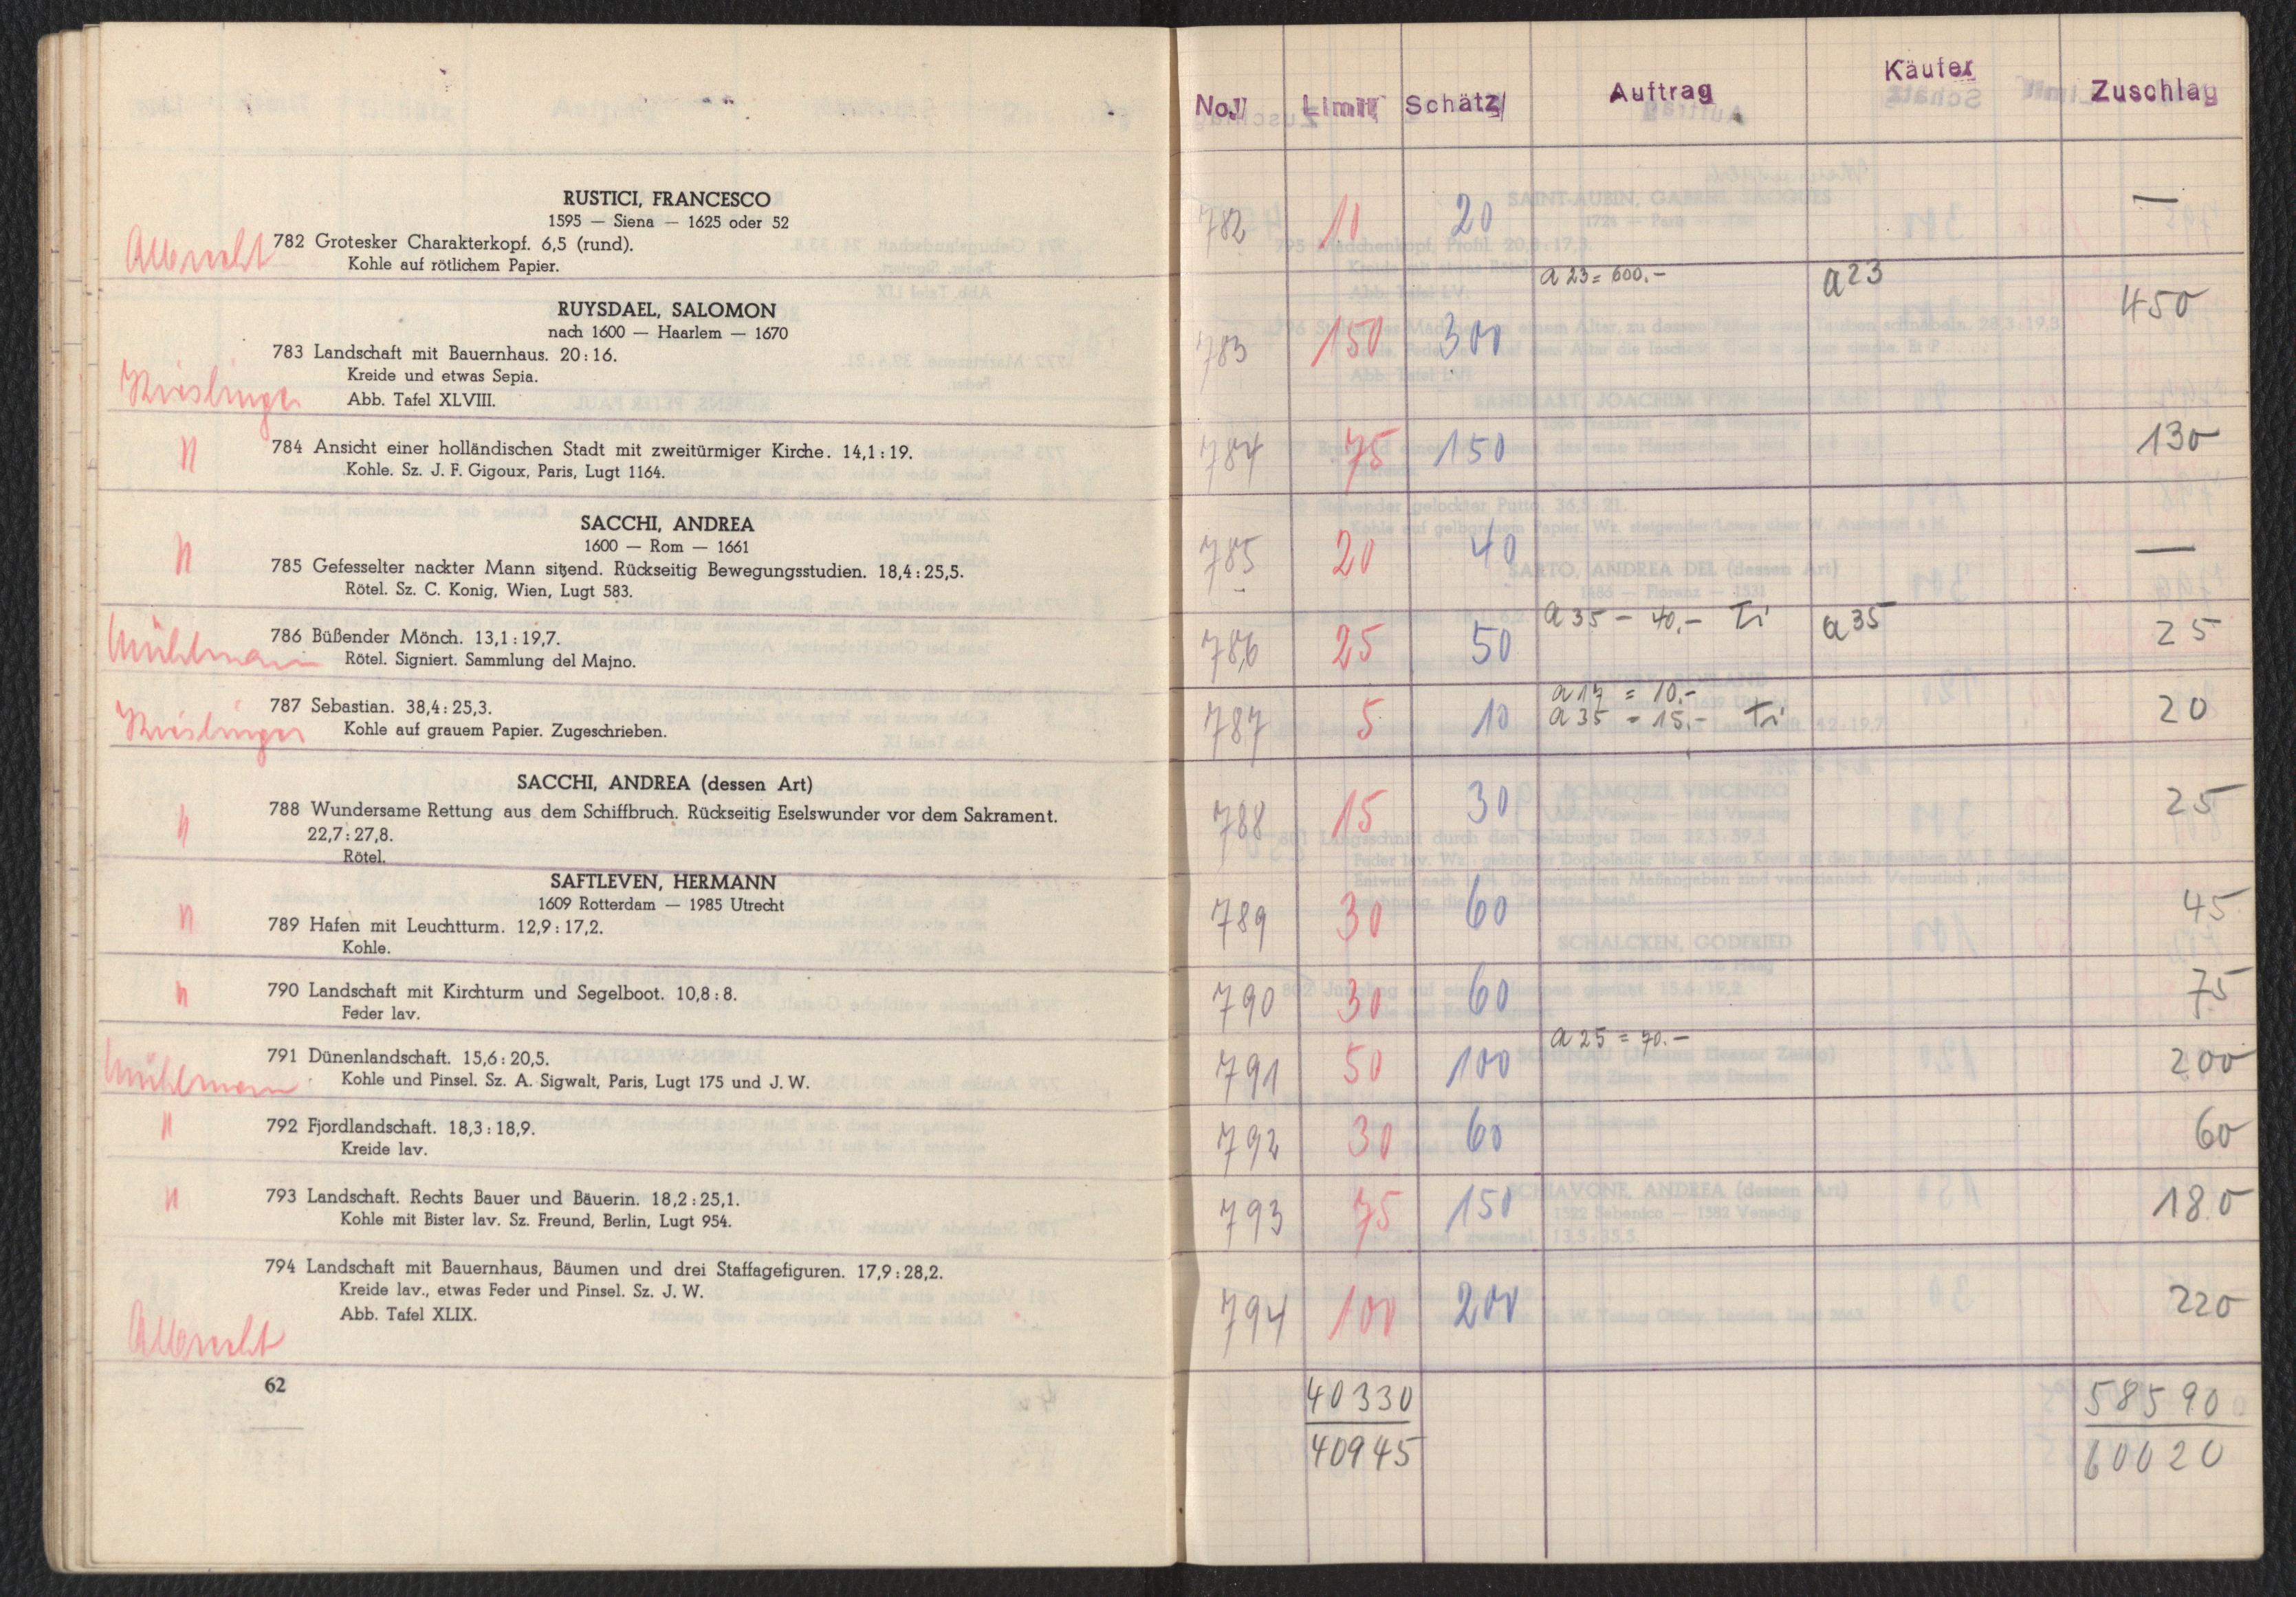 RUSTICI, FRANCESCO
1595 — Siena — 1625 oder 52
782 Grotesker Charakterkopf. 6,5 (rund).
Kohle auf rötlichem Papier.
RUYSDAEL, SALOMON
nach 1600 — Haarlem — 1670
783 Landschaft mit Bauernhaus. 20:16.
Kreide und etwas Sepia.
Abb. Tafel XLVIII.
784 Ansicht einer holländischen Stadt mit zweitürmiger Kirche. 14,1:19.
Kohle. Sz. J. F. Gigoux, Paris, Lugt 1164.
SACCHI, ANDREA
1600 — Rom — 1661
785 Gefesselter nackter Mann sitzend. Rückseitig Bewegungsstudien. 18,4:25,5.
Rötel. Sz. C. Konig, Wien, Lugt 583.
Mühlmann
786 Büßender Mönch. 13,1:19,7.
Rötel. Signiert. Sammlung del Majno.
787 Sebastian. 38,4:25,3.
Kohle auf grauem Papier. Zugeschrieben.
SACCHI, ANDREA (dessen Art)
788 Wundersame Rettung aus dem Schiffbruch. Rückseitig Eselswunder vor dem Sakrament.
22,7:27,8.
Rötel.
SAFTLEVEN, HERMANN
1609 Rotterdam — 1985 Utrecht
789 Hafen mit Leuchtturm. 12,9:17,2.
Kohle.
790 Landschaft mit Kirchturm und Segelboot. 10,8:8.
Feder lav.
Mühlmann
791 Dünenlandschaft. 15,6:20,5.
Kohle und Pinsel. Sz. A. Sigwalt, Paris, Lugt 175 und J. W.
792 Fjordlandschaft. 18,3:18,9.
Kreide lav.
793 Landschaft. Rechts Bauer und Bäuerin. 18,2:25,1.
Kohle mit Bister lav. Sz. Freund, Berlin, Lugt 954.
794 Landschaft mit Bauernhaus, Bäumen und drei Staffagefiguren. 17,9:28,2.
Kreide lav., etwas Feder und Pinsel. Sz. J. W.
Abb. Tafel XLIX.
62
No. Limit Schätz Auftrag Käufer Zuschlag
782 10 20 —
783 150 300 a 23 = 600.- a 23 450
784 75 150 130
785 20 40 —
786 25 50 a 35 - 40.- Ti a 35 25
787 5 10 a 17 = 10.- 20
a 35 - 15.- Ti
788 15 30 25
789 30 60 45
790 30 60 75
791 50 100 a 25 = 70.- 200
792 30 60 60
793 75 150 180
794 100 200 220
40330 58590
40945 60020